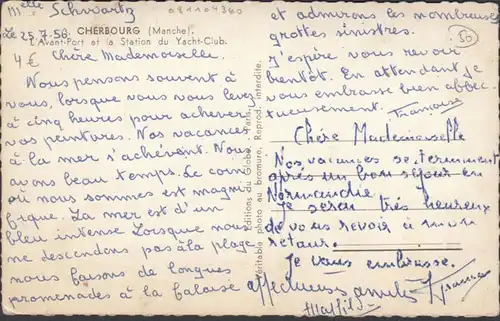 Melle Schwartz
081104340
Le 25.7.56. CHERBOURG (Manche).
L'Avant-Port et la Station du Yacht-Club.
4€ Chère Mademoiselle.
Nous pensons souvent à
vous, lorsque vous vous levez
à cinq heures pour achever
vos peintures. Nos vacances
à la mer s'achèvent. Nous
avons beau temps. Le coin
où nous sommes est magni
fique. La mer est d'un
bleu intense Lorsque nous
ne descendons pas à la plage
nous faisons de longues
promenades à la falaise
Editions du Globe, Paris.
Véritable photo au bromure, Reprod. interdite.
et admirons les nombreuses
grottes sinistres.
J'espère vous revoir
bientôt. En attendant je
vous embrasse bien affec-
tueusement.
50
Chère Mademoiselle
Nos vacances se terminent
après un bon séjour en
Normandie.
Je serai très heureux
de vous revoir à mon
retour.
Je vous embrasse.